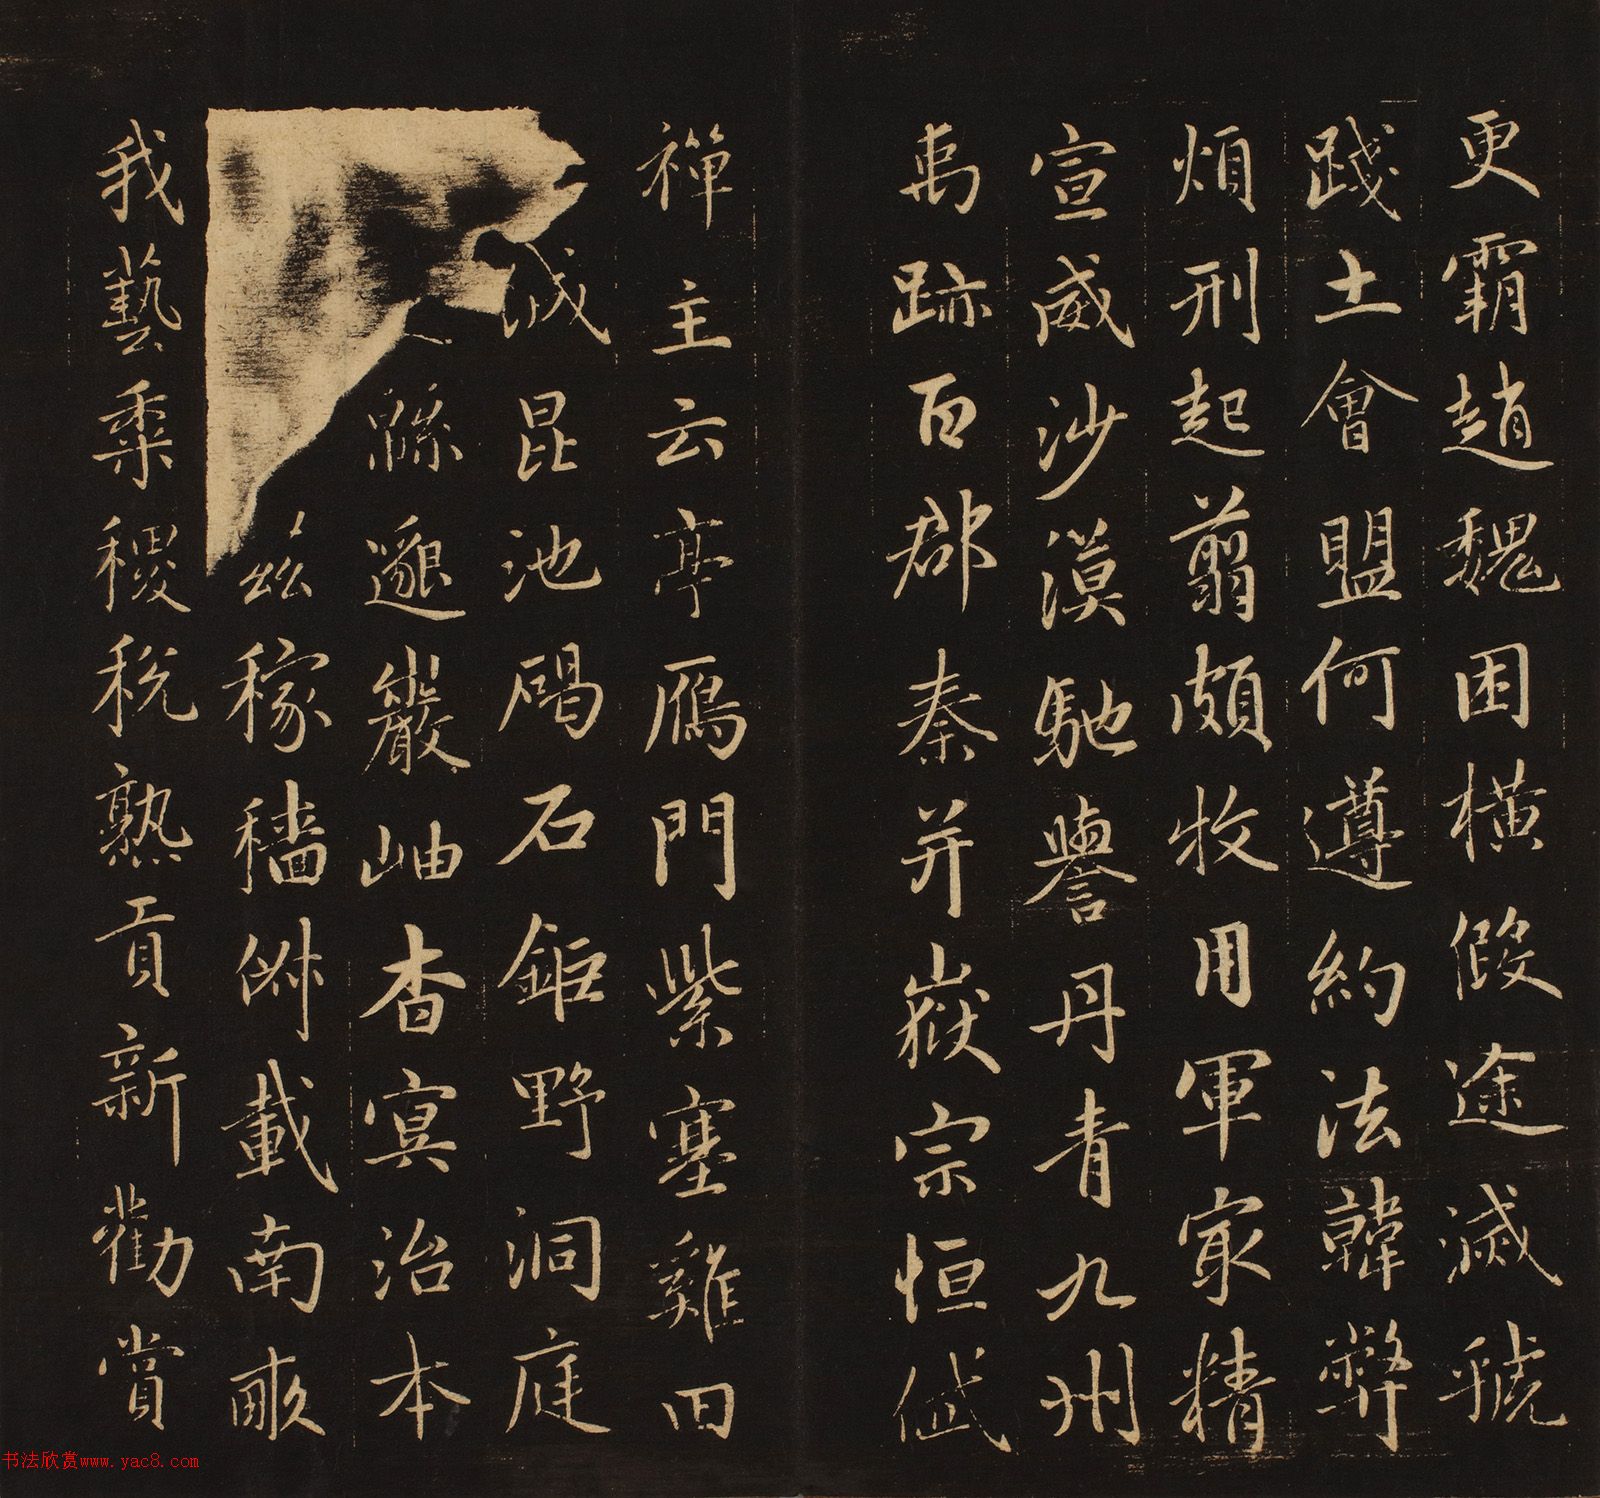 更霸趙魏困橫假途滅虢
踐土會盟何遵約法韓弊
煩刑起翦頗牧用軍冣精
宣威沙漠馳譽丹青九州
禹跡百郡秦并嶽宗恒岱
禪主云亭鴈門紫塞雞田
城昆池碣石鉅野洞庭
緜邈巖岫杳冥治本
茲稼穡俶載南畝
我藝黍稷稅熟貢新勸賞
书法欣赏www.yac8.com